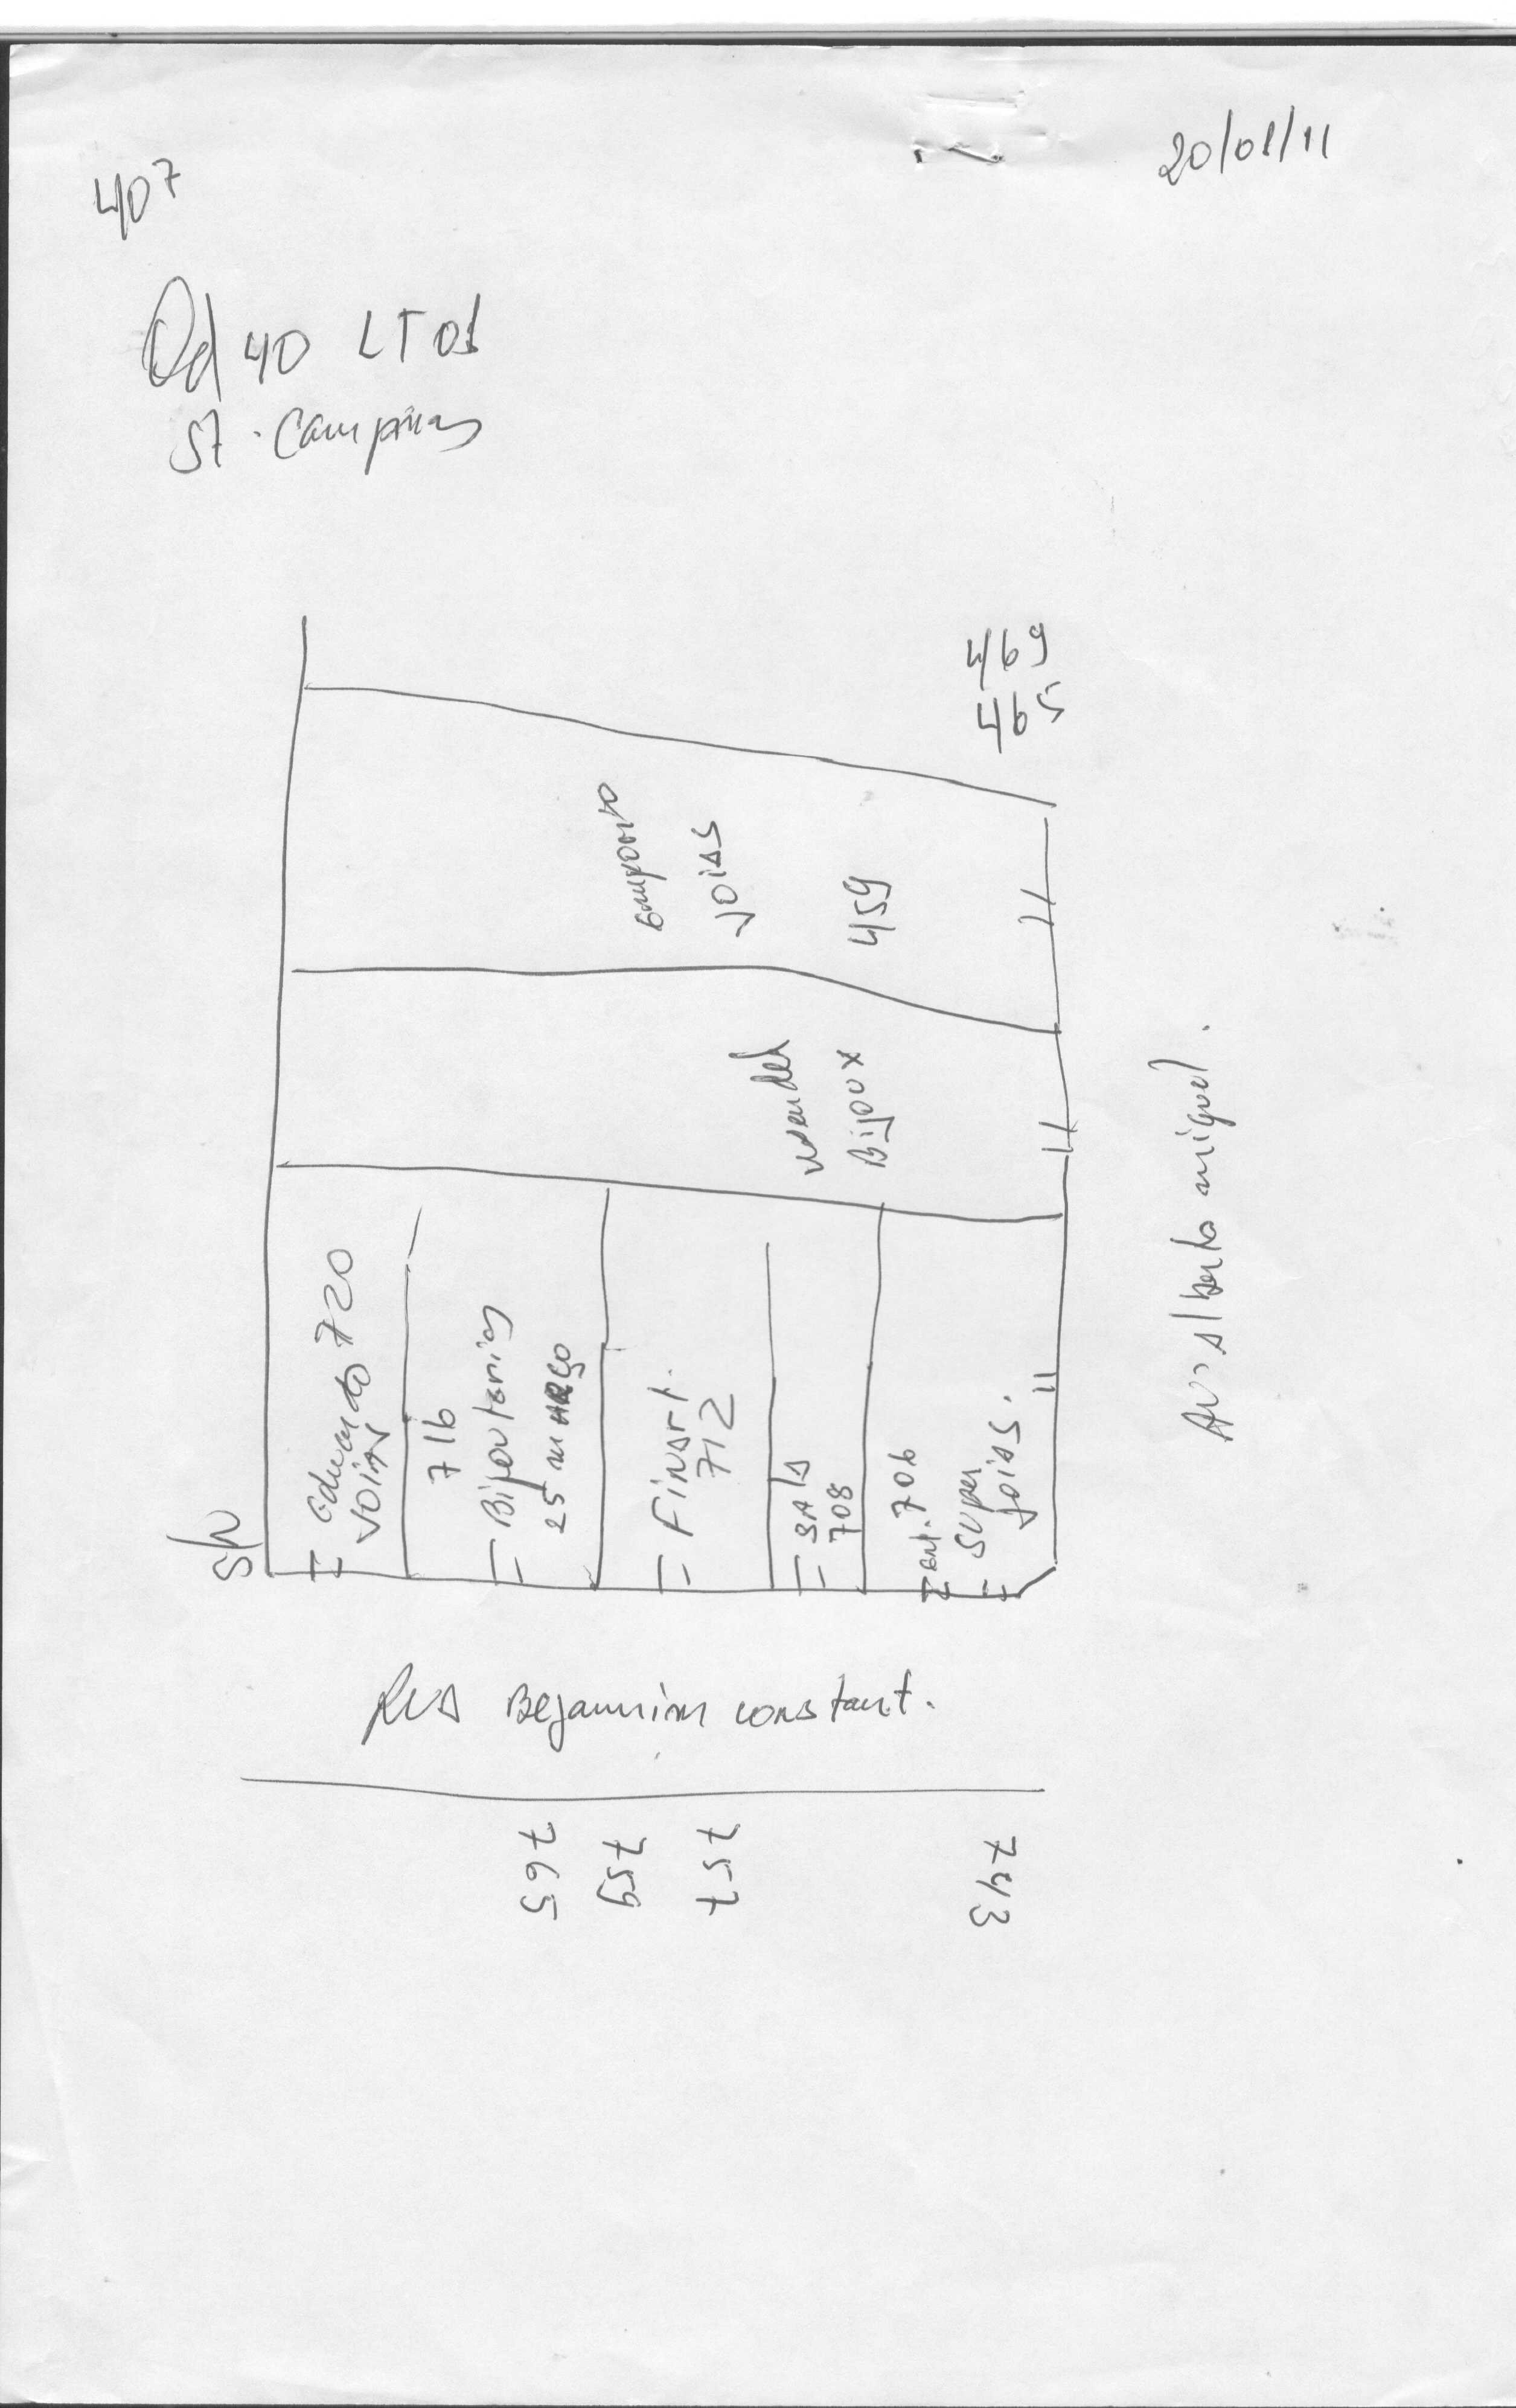 407
20/01/11
Qd 40 LT 01
St. Campinas
469
465
emporio
Joias
459
Bijoux
S/N
eduardo 720
Joias
716
Bijouterias
25 março
Finart.
712
SALA
708
ent. 706
super
Joias.
Av: Alberto miguel.
RUA Bejamim constant.
765
759
757
743